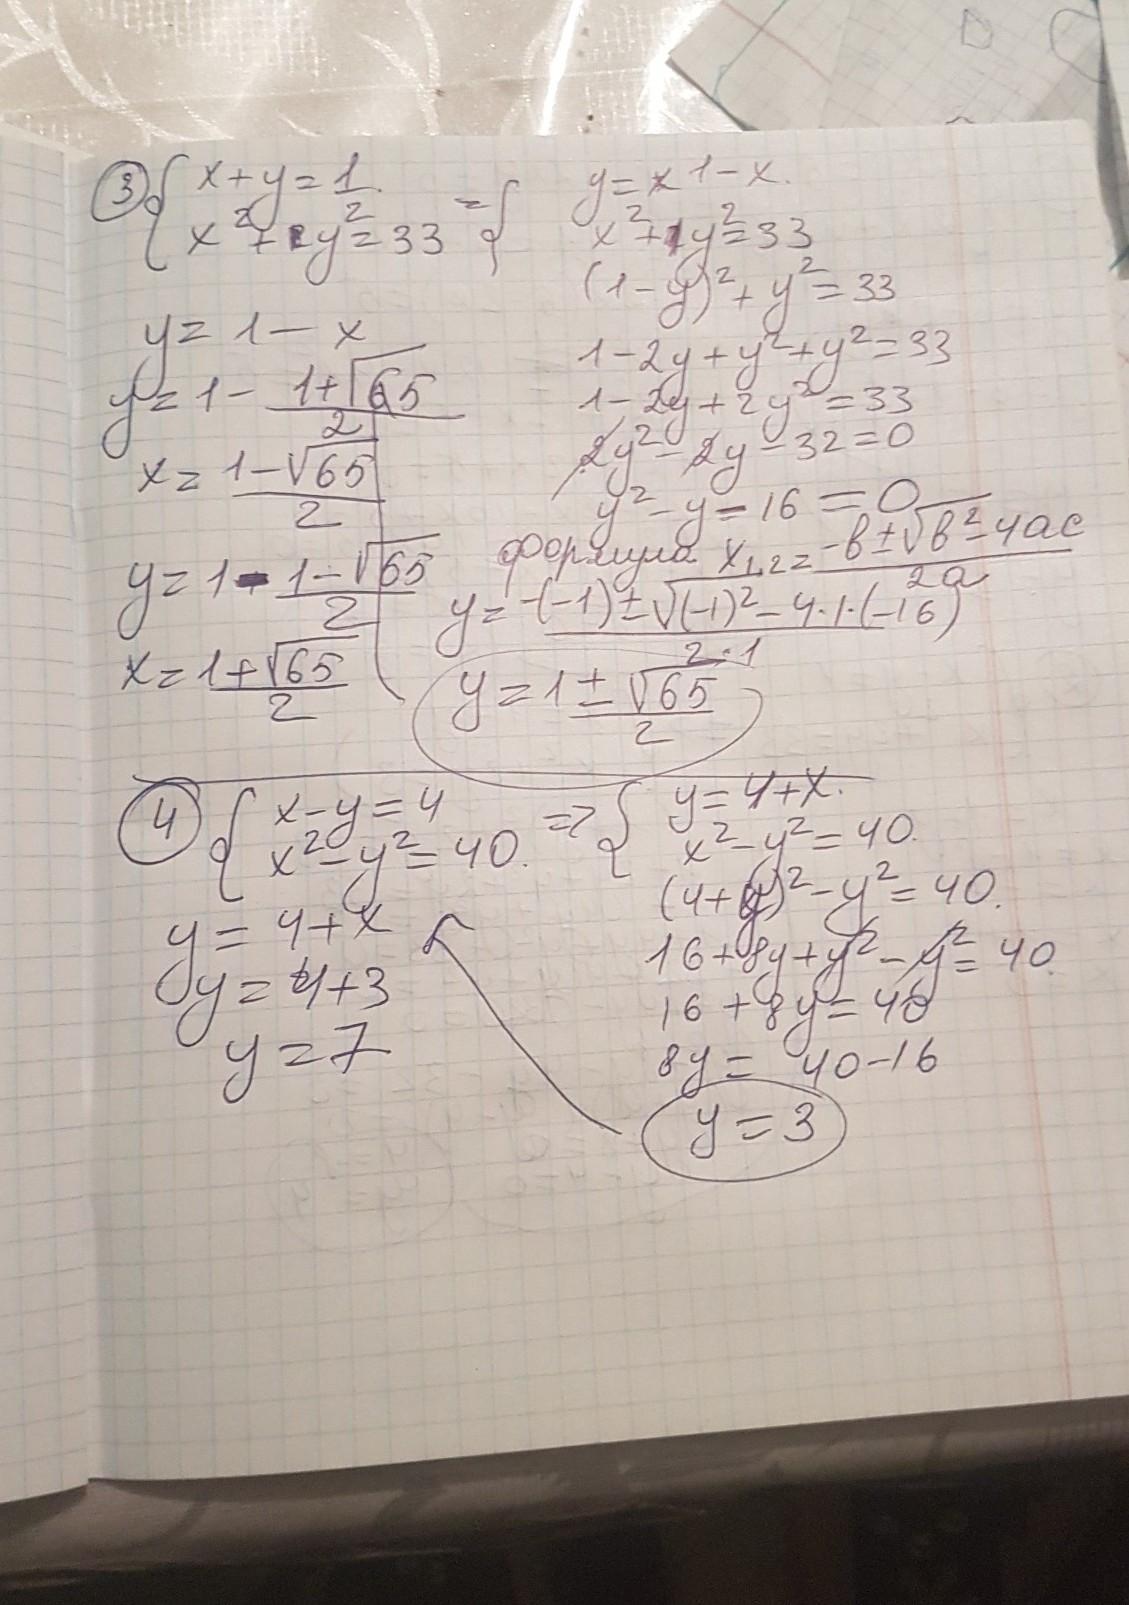 3 { x+y=1.
x²+y²=33 = {
y=1-x.
x²+y²=33
(1-y)²+y²=33
1-2y+y²+y²=33
1-2y+2y²=33
2y²-2y-32=0
y²-y-16=0
формула x₁,₂= -b±√b²-4ac / 2a
y= -(-1)±√(-1)²-4·1·(-16) / 2·1
y= 1±√65 / 2
y=1-x
y=1- 1+√65 / 2
x= 1-√65 / 2
y=1- 1-√65 / 2
x= 1+√65 / 2
4 { x-y=4
x²-y²=40. => {
y=4+x.
x²-y²=40.
(4+y)²-y²=40.
16+8y+y²-y²=40.
16+8y=40
8y= 40-16
y=3
y=4+x
y=4+3
y=7